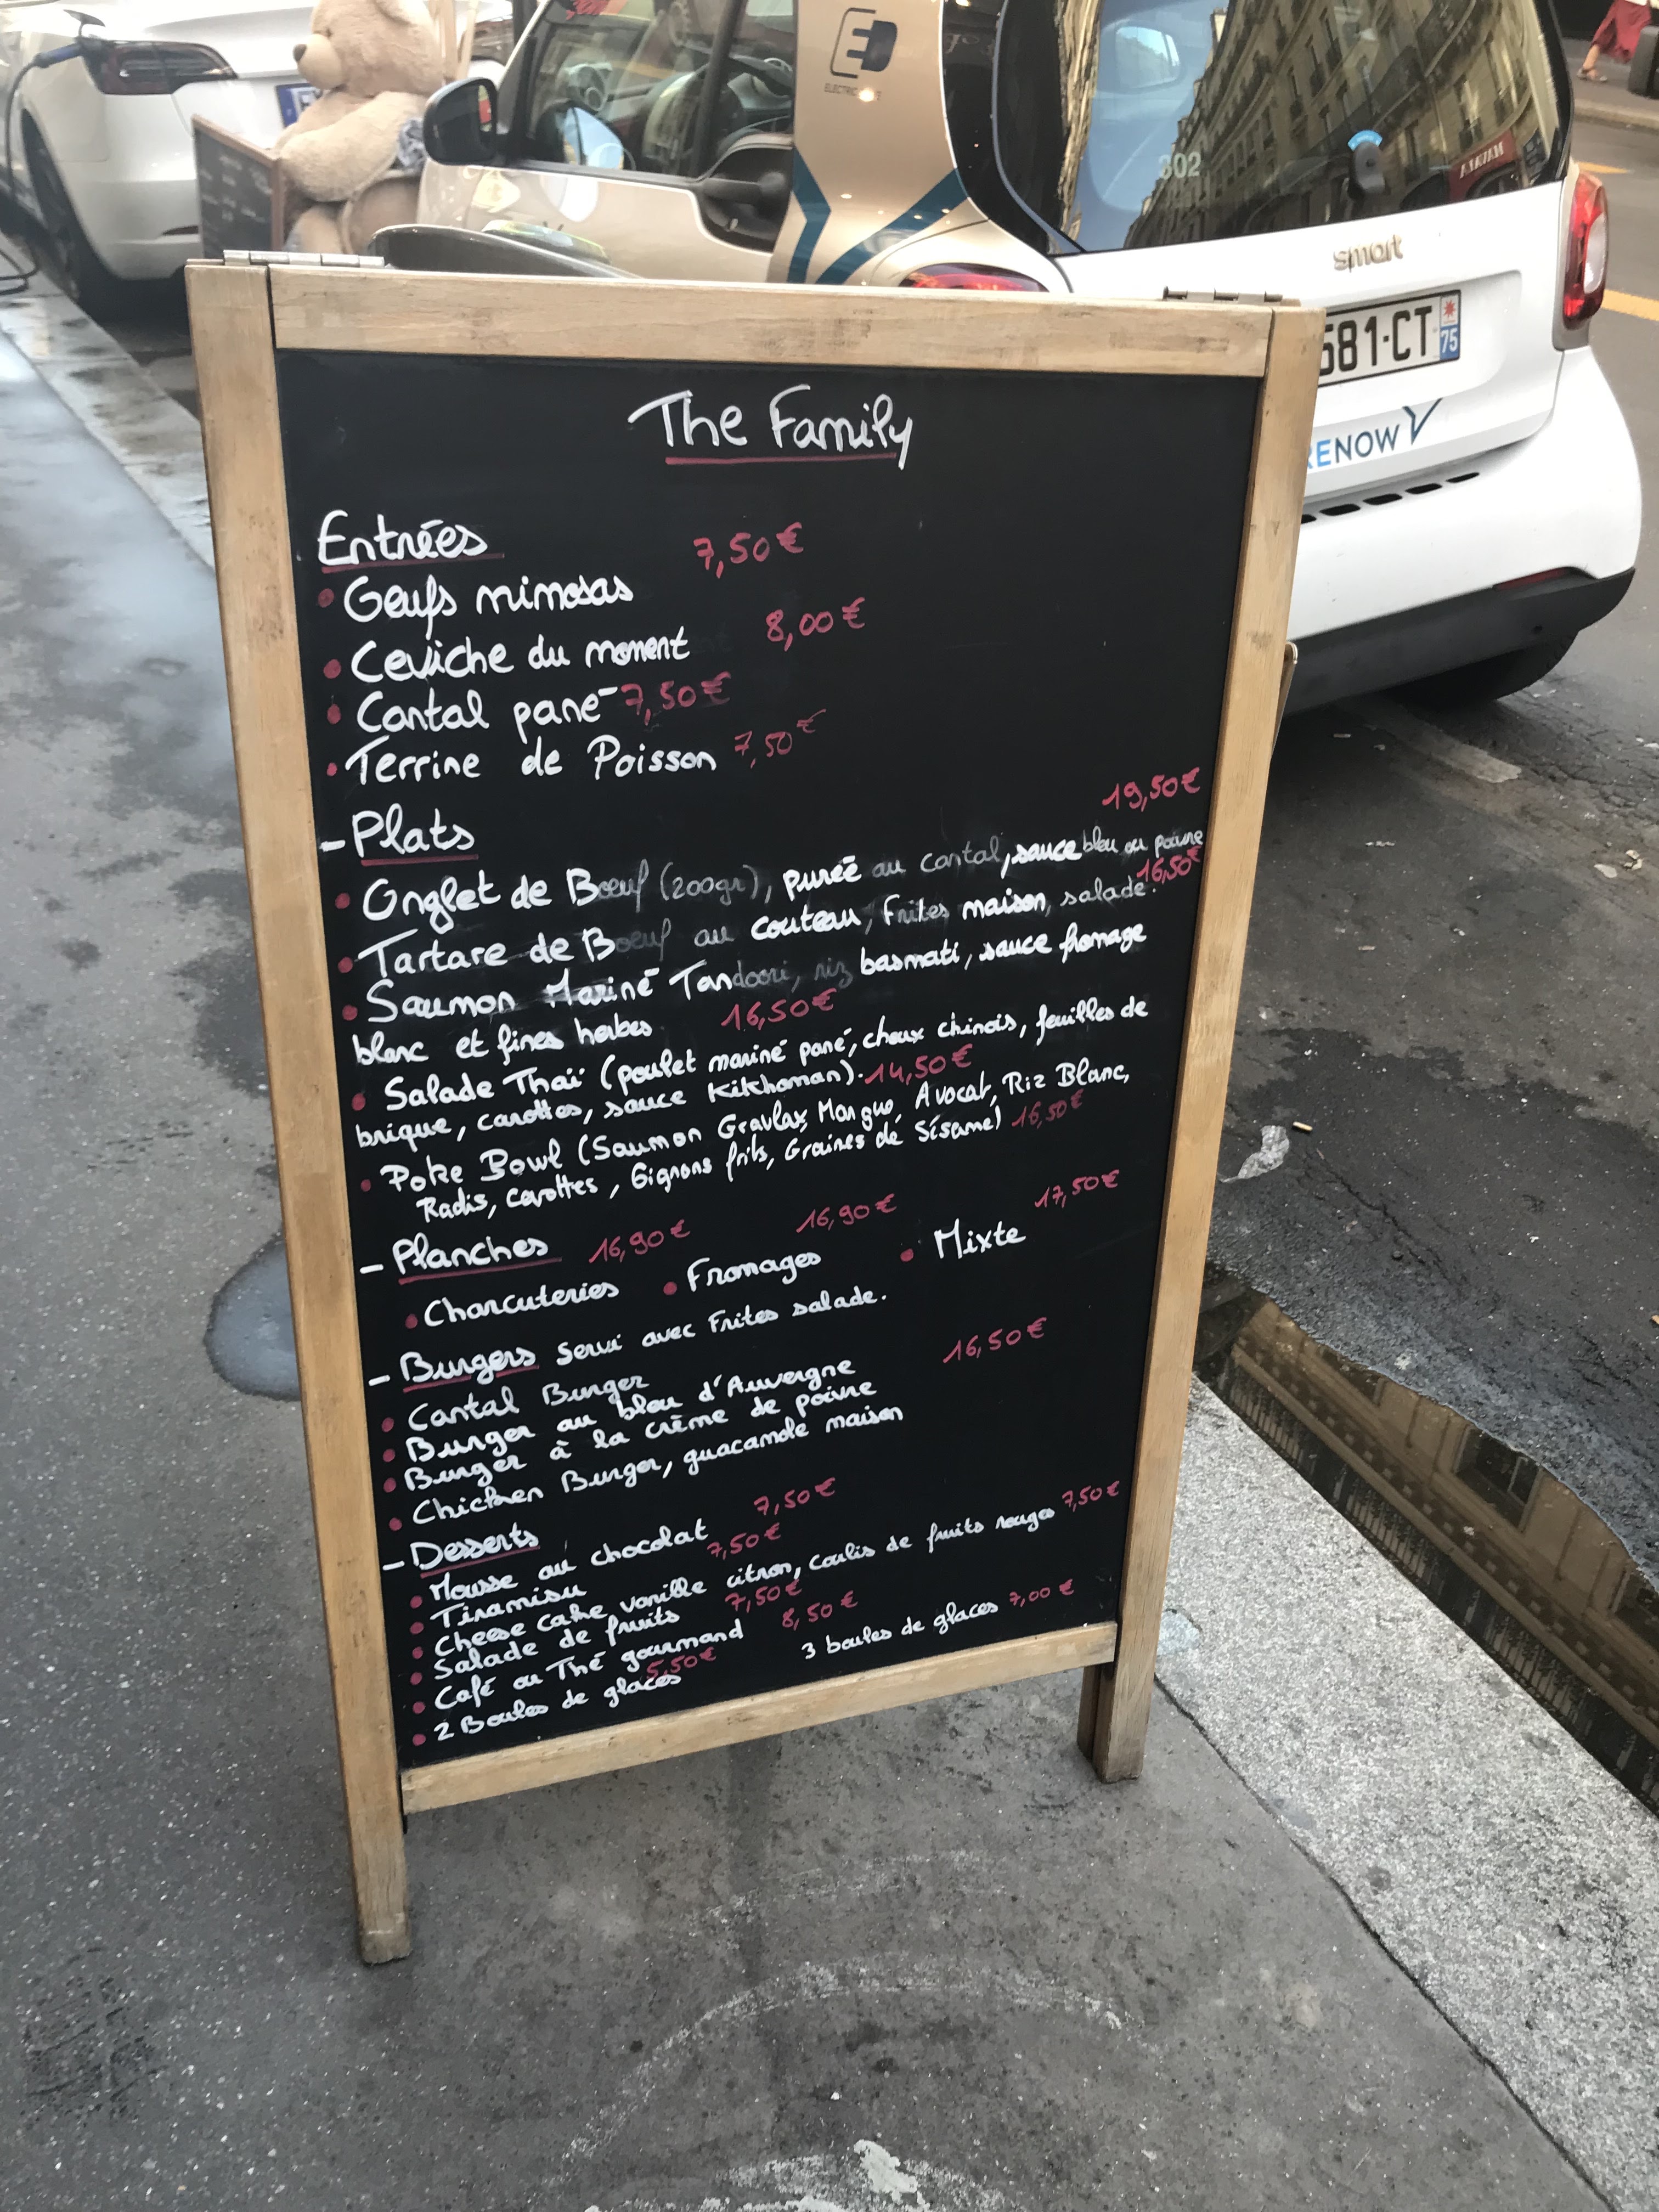 ELECTRIC
302
smart
581-CT
75
RENOW
The Family
Entrées
Oeufs mimosas 7,50€
Ceviche du moment 8,00€
Cantal pané 7,50€
Terrine de Poisson 7,50€
- Plats
19,50€
Onglet de Boeuf (200gr), purée au cantal, sauce bleu ou poivre
Tartare de Boeuf au couteau, frites maison, salade. 16,50€
Saumon Mariné Tandoori, riz basmati, sauce fromage
blanc et fines herbes 16,50€
Salade Thaï (poulet mariné pané, choux chinois, feuilles de
brique, carottes, sauce Kitchoman). 14,50€
Poke Bowl (Saumon Gravlax, Mangue, Avocat, Riz Blanc,
Radis, carottes, Oignons frits, Graines de Sésame) 16,50€
- Planches 16,90€ 16,90€ 17,50€
Charcuteries Fromages Mixte
- Burgers servi avec Frites salade.
16,50€
Cantal Burger
Burger au bleu d'Auvergne
Burger à la crème de poivre
Chicken Burger, guacamole maison
- Desserts
Mousse au chocolat 7,50€
Tiramisu 7,50€
Cheese cake vanille citron, coulis de fruits rouges 7,50€
Salade de fruits 7,50€
Café ou Thé gourmand 8,50€
2 Boules de glaces 5,50€ 3 boules de glaces 7,00€